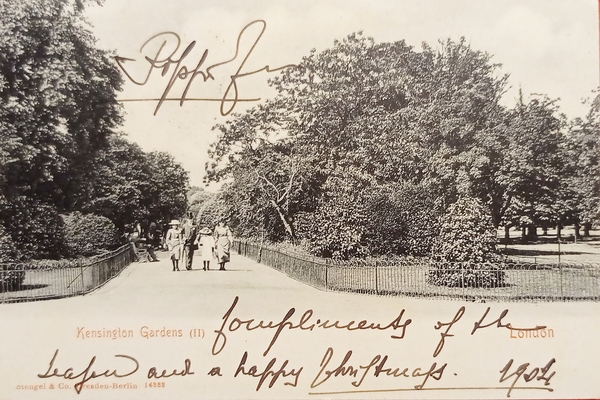 Kensington Gardens (II)
Compliments of the
London
Season and a happy Christmas. 1904
Stengel & Co., Dresden-Berlin 14888